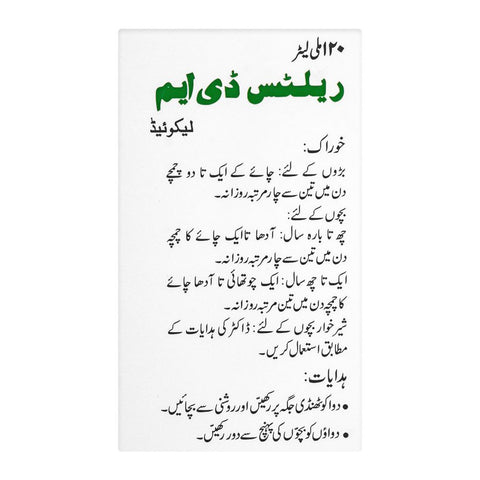 ۱۲۰ ملی لیٹر
ریلٹس ڈی ایم
لیکوئیڈ
خوراک:
بڑوں کے لئے: چائے کے ایک تا دو چمچے
دن میں تین سے چار مرتبہ روزانہ۔
بچوں کے لئے:
چھ تا بارہ سال: آدھا تا ایک چائے کا چمچہ
دن میں تین سے چار مرتبہ روزانہ۔
ایک تا چھ سال: ایک چوتھائی تا آدھا چائے
کا چمچہ دن میں تین مرتبہ روزانہ۔
شیر خوار بچوں کے لئے: ڈاکٹر کی ہدایات کے
مطابق استعمال کریں۔
ہدایات:
• دوا کو ٹھنڈی جگہ پر رکھیں اور روشنی سے بچائیں۔
• دواؤں کو بچّوں کی پہنچ سے دور رکھیں۔